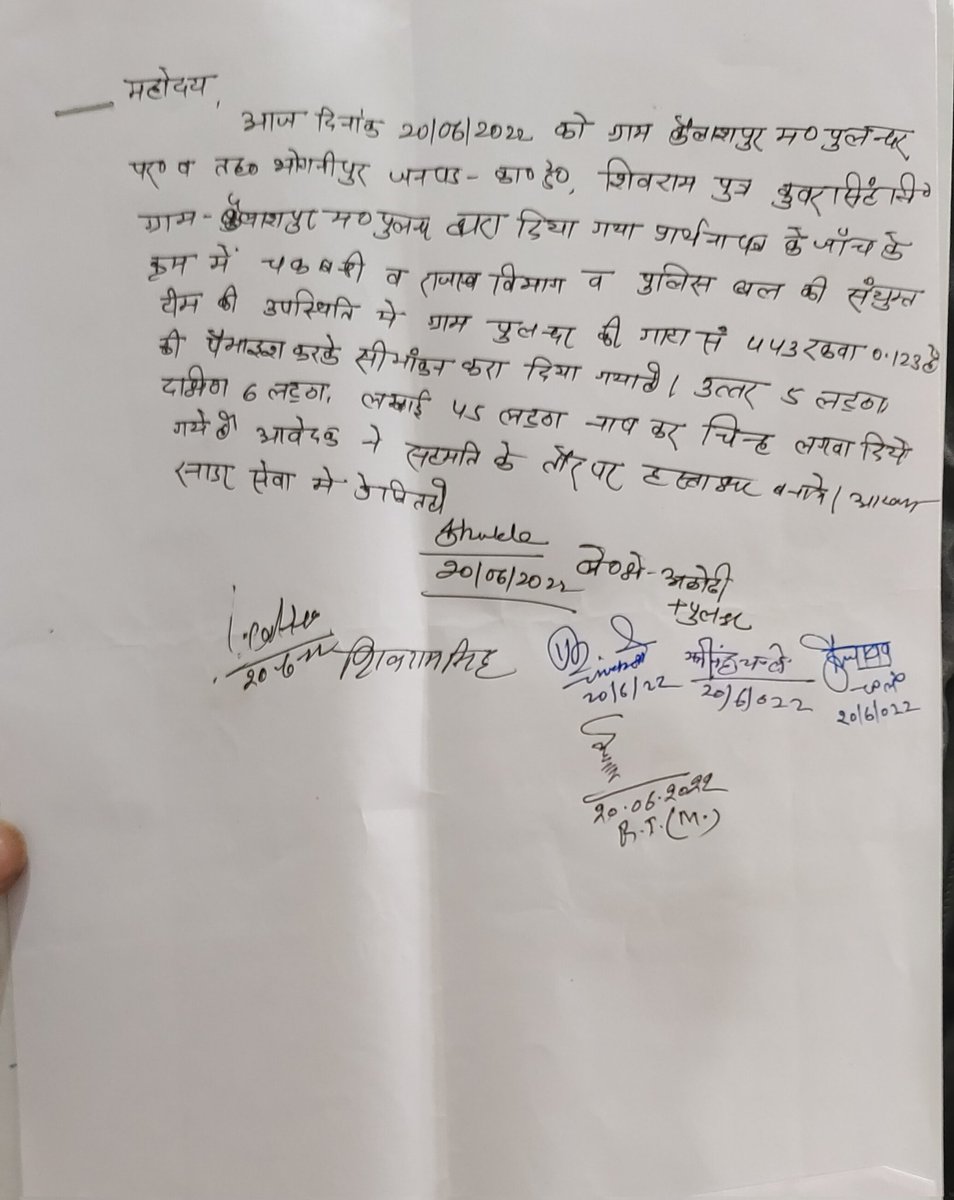 महोदय,
आज दिनांक 20/06/2022 को ग्राम कैलाशपुर म० पुलन्दर
पर० व तह० भोगनीपुर जनपद - का० दे०, शिवराम पुत्र कुवर सिंह नि०
ग्राम - कैलाशपुर म० पुलन्दर द्वारा दिया गया प्रार्थना पत्र के जाँच के
क्रम में चकबन्दी व राजस्व विभाग व पुलिस बल की संयुक्त
टीम की उपस्थिति मे ग्राम पुलन्दर की गाटा सं 443 रकवा 0.123 है
की पैमाइश करके सीमांकन करा दिया गया है। उत्तर 5 लट्ठा,
दक्षिण 6 लट्ठा, लम्बाई 45 लट्ठा नाप कर चिन्ह लगवा दिये
गये है आवेदक ने सहमति के तौर पर हस्ताक्षर बनाये। आख्या
सादर सेवा मे प्रेषित है
Shukla
20/06/2022 ले० क्षे - अकोढी
+ पुलन्दर
20.6.22 शिवराम सिंह
20/6/22 20/6/022
20/6/022
20.06.2022
R.I.(M.)